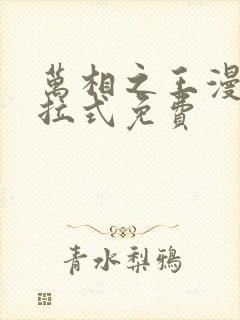 萬相之王漫
拉式免費
青水梨鴉